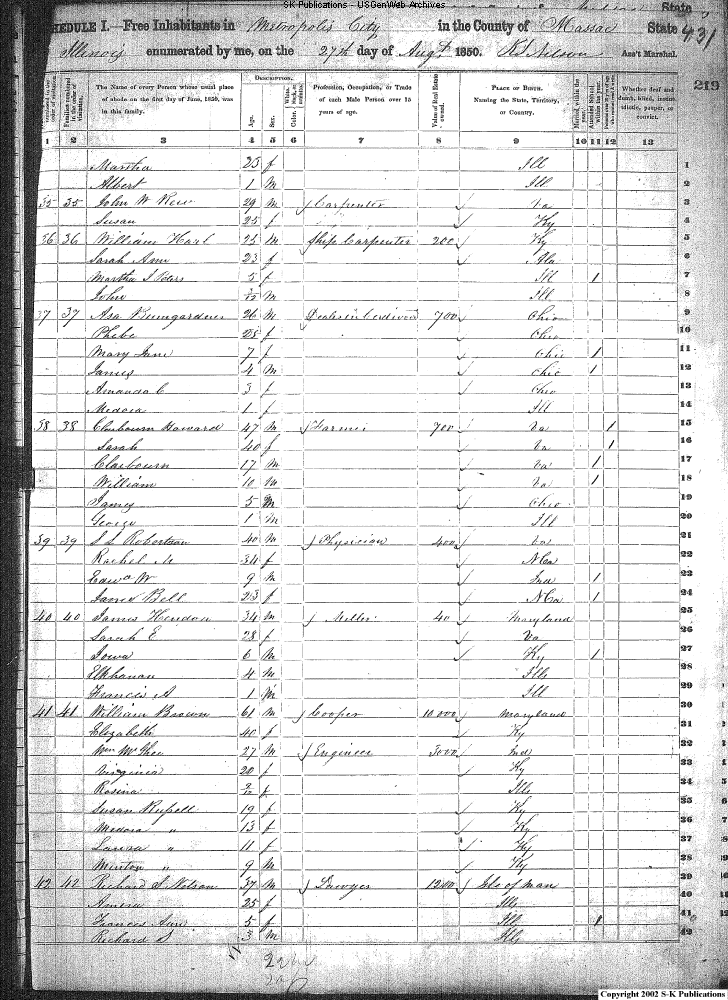 SK Publications - USGenWeb Archives
State
SCHEDULE I.—Free Inhabitants in Metropolis City in the County of Massac State 431
Illinois enumerated by me, on the 27th day of Augt 1850. R S Nelson Ass't Marshal.
219
DESCRIPTION.
The Name of every Person whose usual place of abode on the first day of June, 1850, was in this family.
Age.
Sex.
Profession, Occupation, or Trade of each Male Person over 15 years of age.
Value of Real Estate owned.
PLACE OF BIRTH. Naming the State, Territory, or Country.
Whether deaf and dumb, blind, insane, idiotic, pauper, or convict.
1 2 3 4 5 6 7 8 9 10 11 12 13
Martha 23 f Ill 1
Albert 1 M Ill 2
35 35 John W 29 M Carpenter Va 3
Susan 25 f Ky 4
36 36 William 25 M Ship Carpenter 200 Ky 5
Sarah Ann 23 f Ala 6
Martha J 5 f Ill 1 7
John M Ill 8
37 37 Asa Bumgardner 26 M 700 Ohio 9
Phebe 25 f Ohio 10
Mary Jane 7 f Ohio 1 11
James 4 M Ohio 1 12
Amanda C 3 f Ohio 13
Medora 1 f Ill 14
38 38 Claibourn Howard 47 M Farmer 700 Va 1 15
Sarah 40 f Va 1 16
Claibourn 17 M Va 1 17
William 10 M Va 1 18
James 5 M Ohio 19
George 1 M Ill 20
39 39 S L Robertson 40 M Physician 400 Va 21
Rachel M 34 f N Ca 22
Edwd W 9 M Ind 1 23
Bell 23 f N Ca 1 24
40 40 James Hendon 34 M Miller 40 Maryland 25
Sarah E 28 f Va 26
Iowa 6 M Ky 1 27
Elkhanan 4 M Ills 28
Francis A 1 M Ill 29
41 41 William Brown 61 M Cooper 10000 Maryland 30
Elizabeth 40 f Ky 31
Wm 27 M Engineer 3000 Ind 32
Virginia 20 f Ky 33
Rosina f Ills 34
Susan Russell 19 f Ky 35
Medora " 13 f Ky 36
Laura " 11 f Ky 37
" 9 M Ky 38
42 42 Richard S Nelson 37 M Lawyer 1200 Isle of Man 39
25 f Ills 40
Frances Ann 5 f Ill 1 41
Richard S 3 M Ills 42
Copyright 2002 S-K Publications